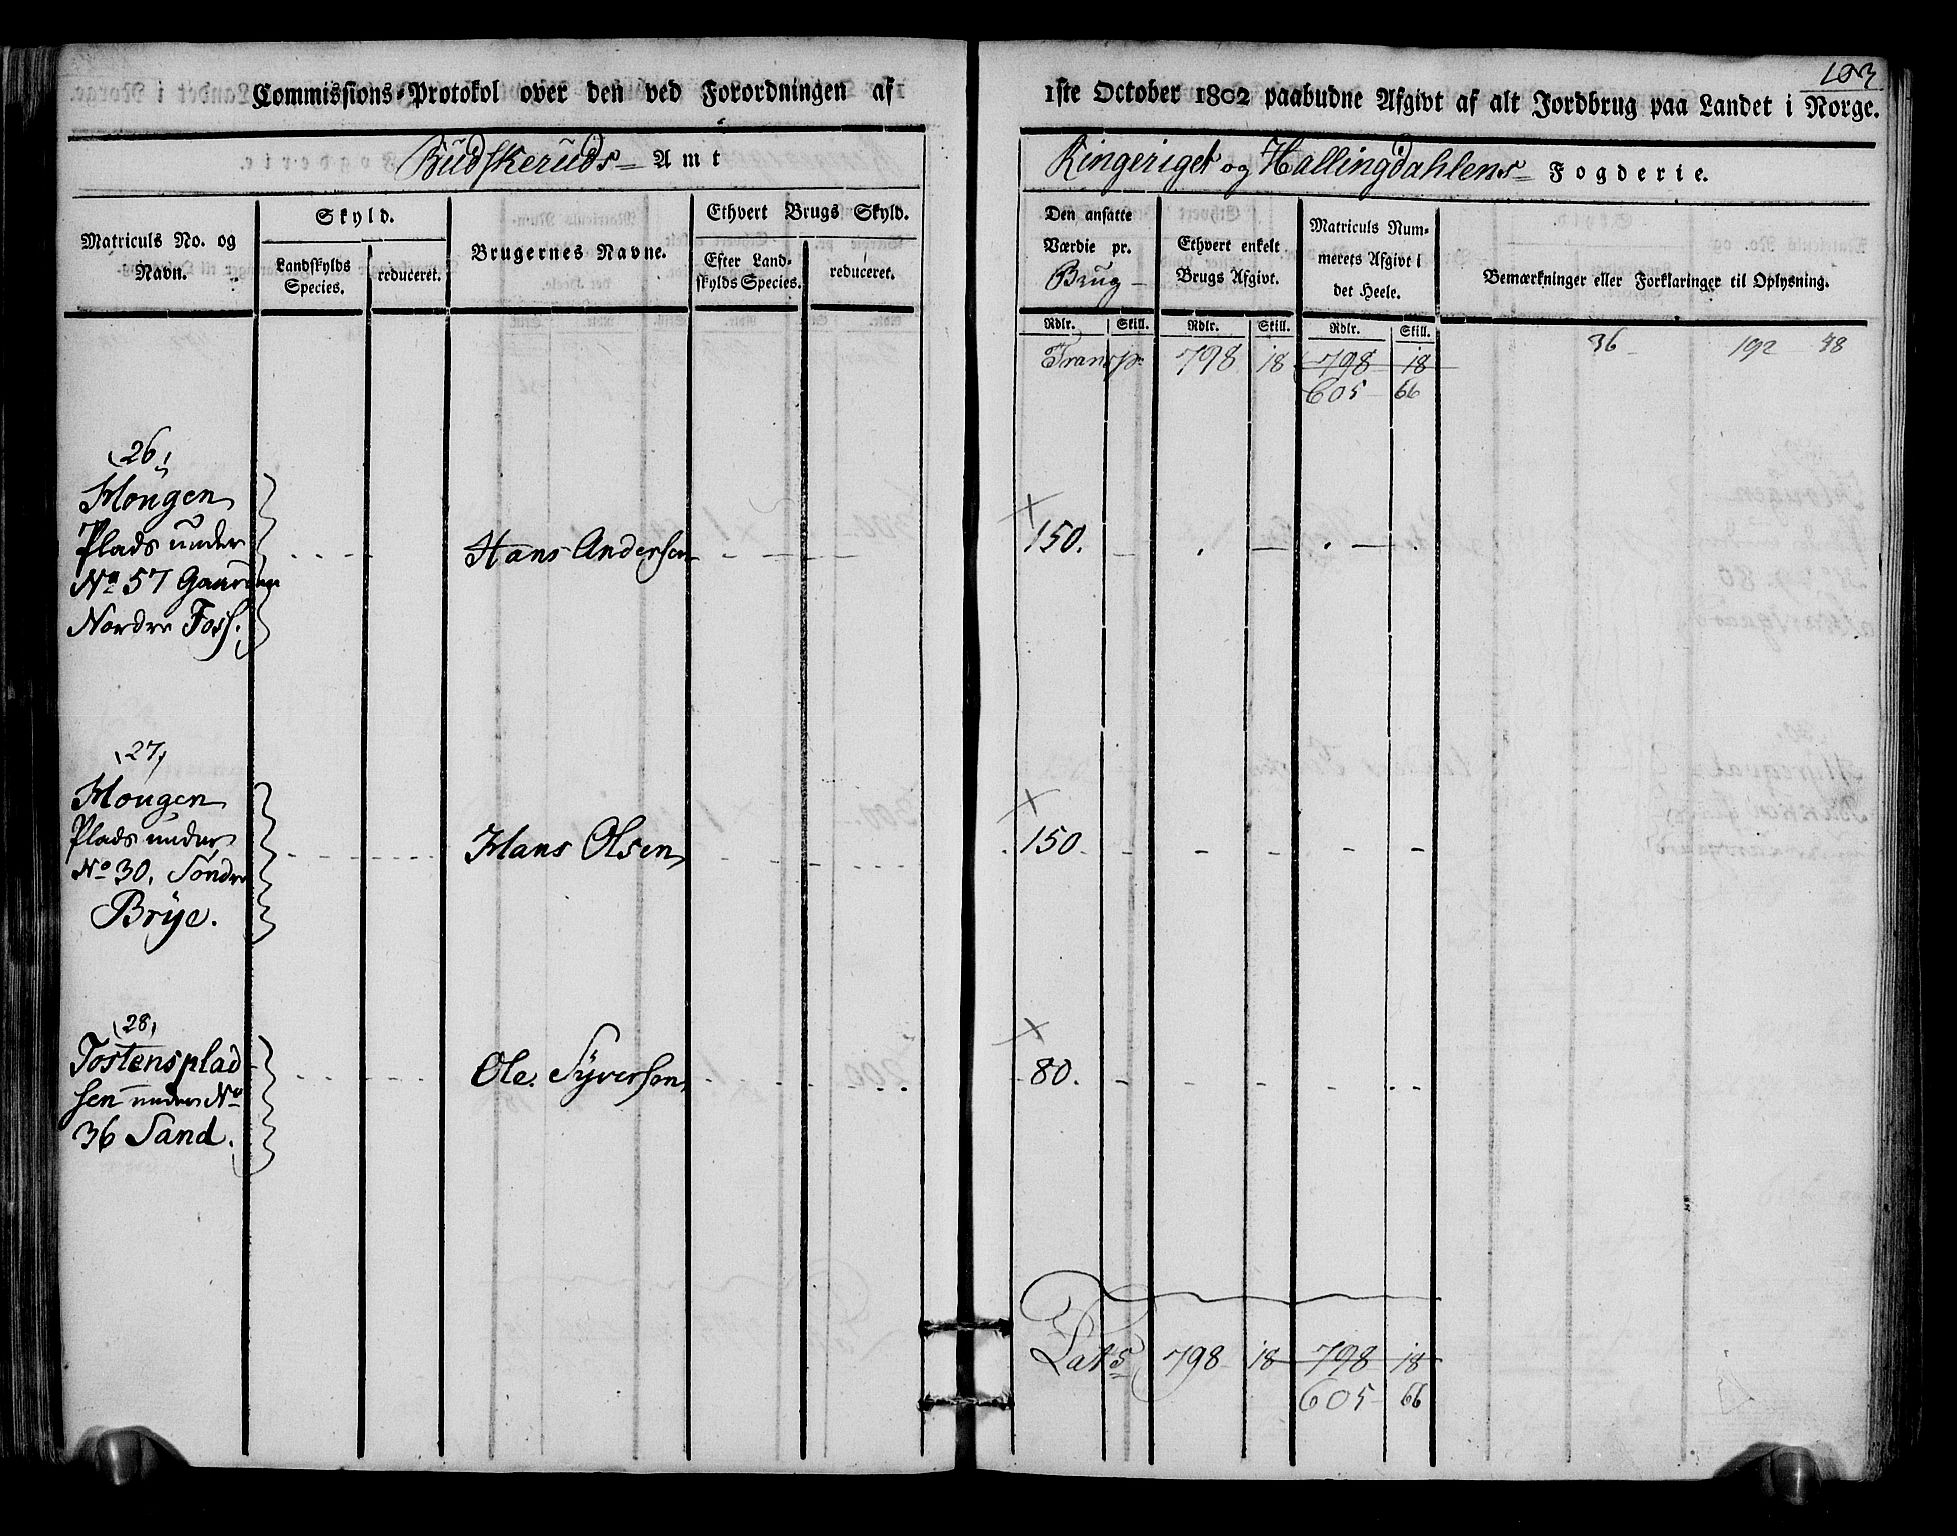 193
Commissions-Protokol over den ved Forordningen af 1ste October 1802 paabudne Afgivt af alt Jordbrug paa Landet i Norge.
Budskeruds Amt
Ringeriget og Hallingdahlens Fogderie.
Matriculs No. og Navn.
Skyld.
Landskylds Species.
reduceret.
Brugernes Navne.
Ethvert Brugs Skyld.
Efter Landskylds Species.
reduceret.
Den ansatte Værdie pr. Brug
Ethvert enkelt Brugs Afgivt.
Matriculs Nummerets Afgivt i det Heele.
Bemærkninger eller Forklaringer til Oplysning.
Rdlr. Skill. Rdlr. Skill. Rdlr. Skill.
Transp. 798 18 798 18 36 192 48
605 66
26
Hougen
Plads under
No 57 Gaarden
Nordre Foss.
Hans Andersen
150.
27
Hougen
Plads under
No 30, Søndre
Brye.
Hans Olsen
150
28
Tostensplad
sen under No
36 Sand.
Ole Syversen
80.
Lats 798 18 798 18
605 66